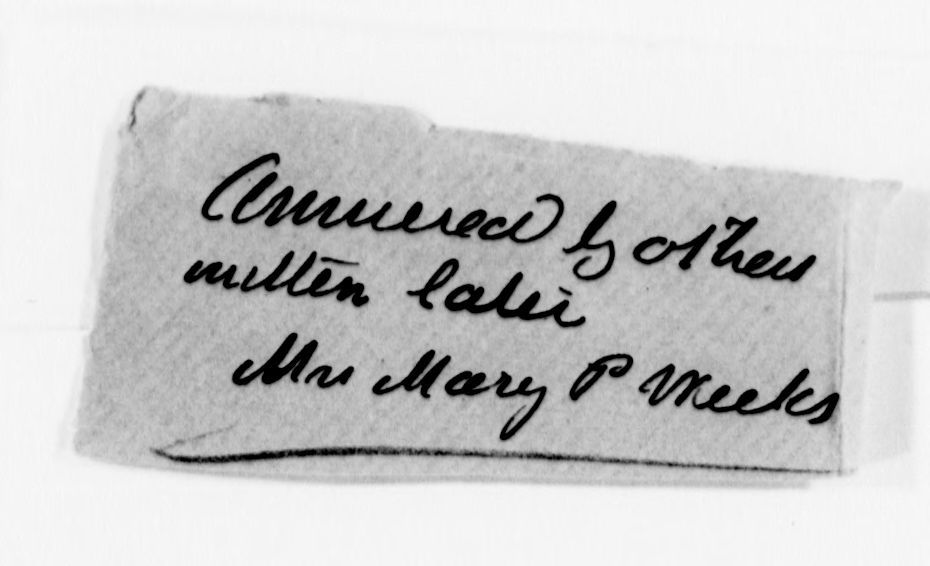 Answered by others
written later
Mrs Mary P Weeks